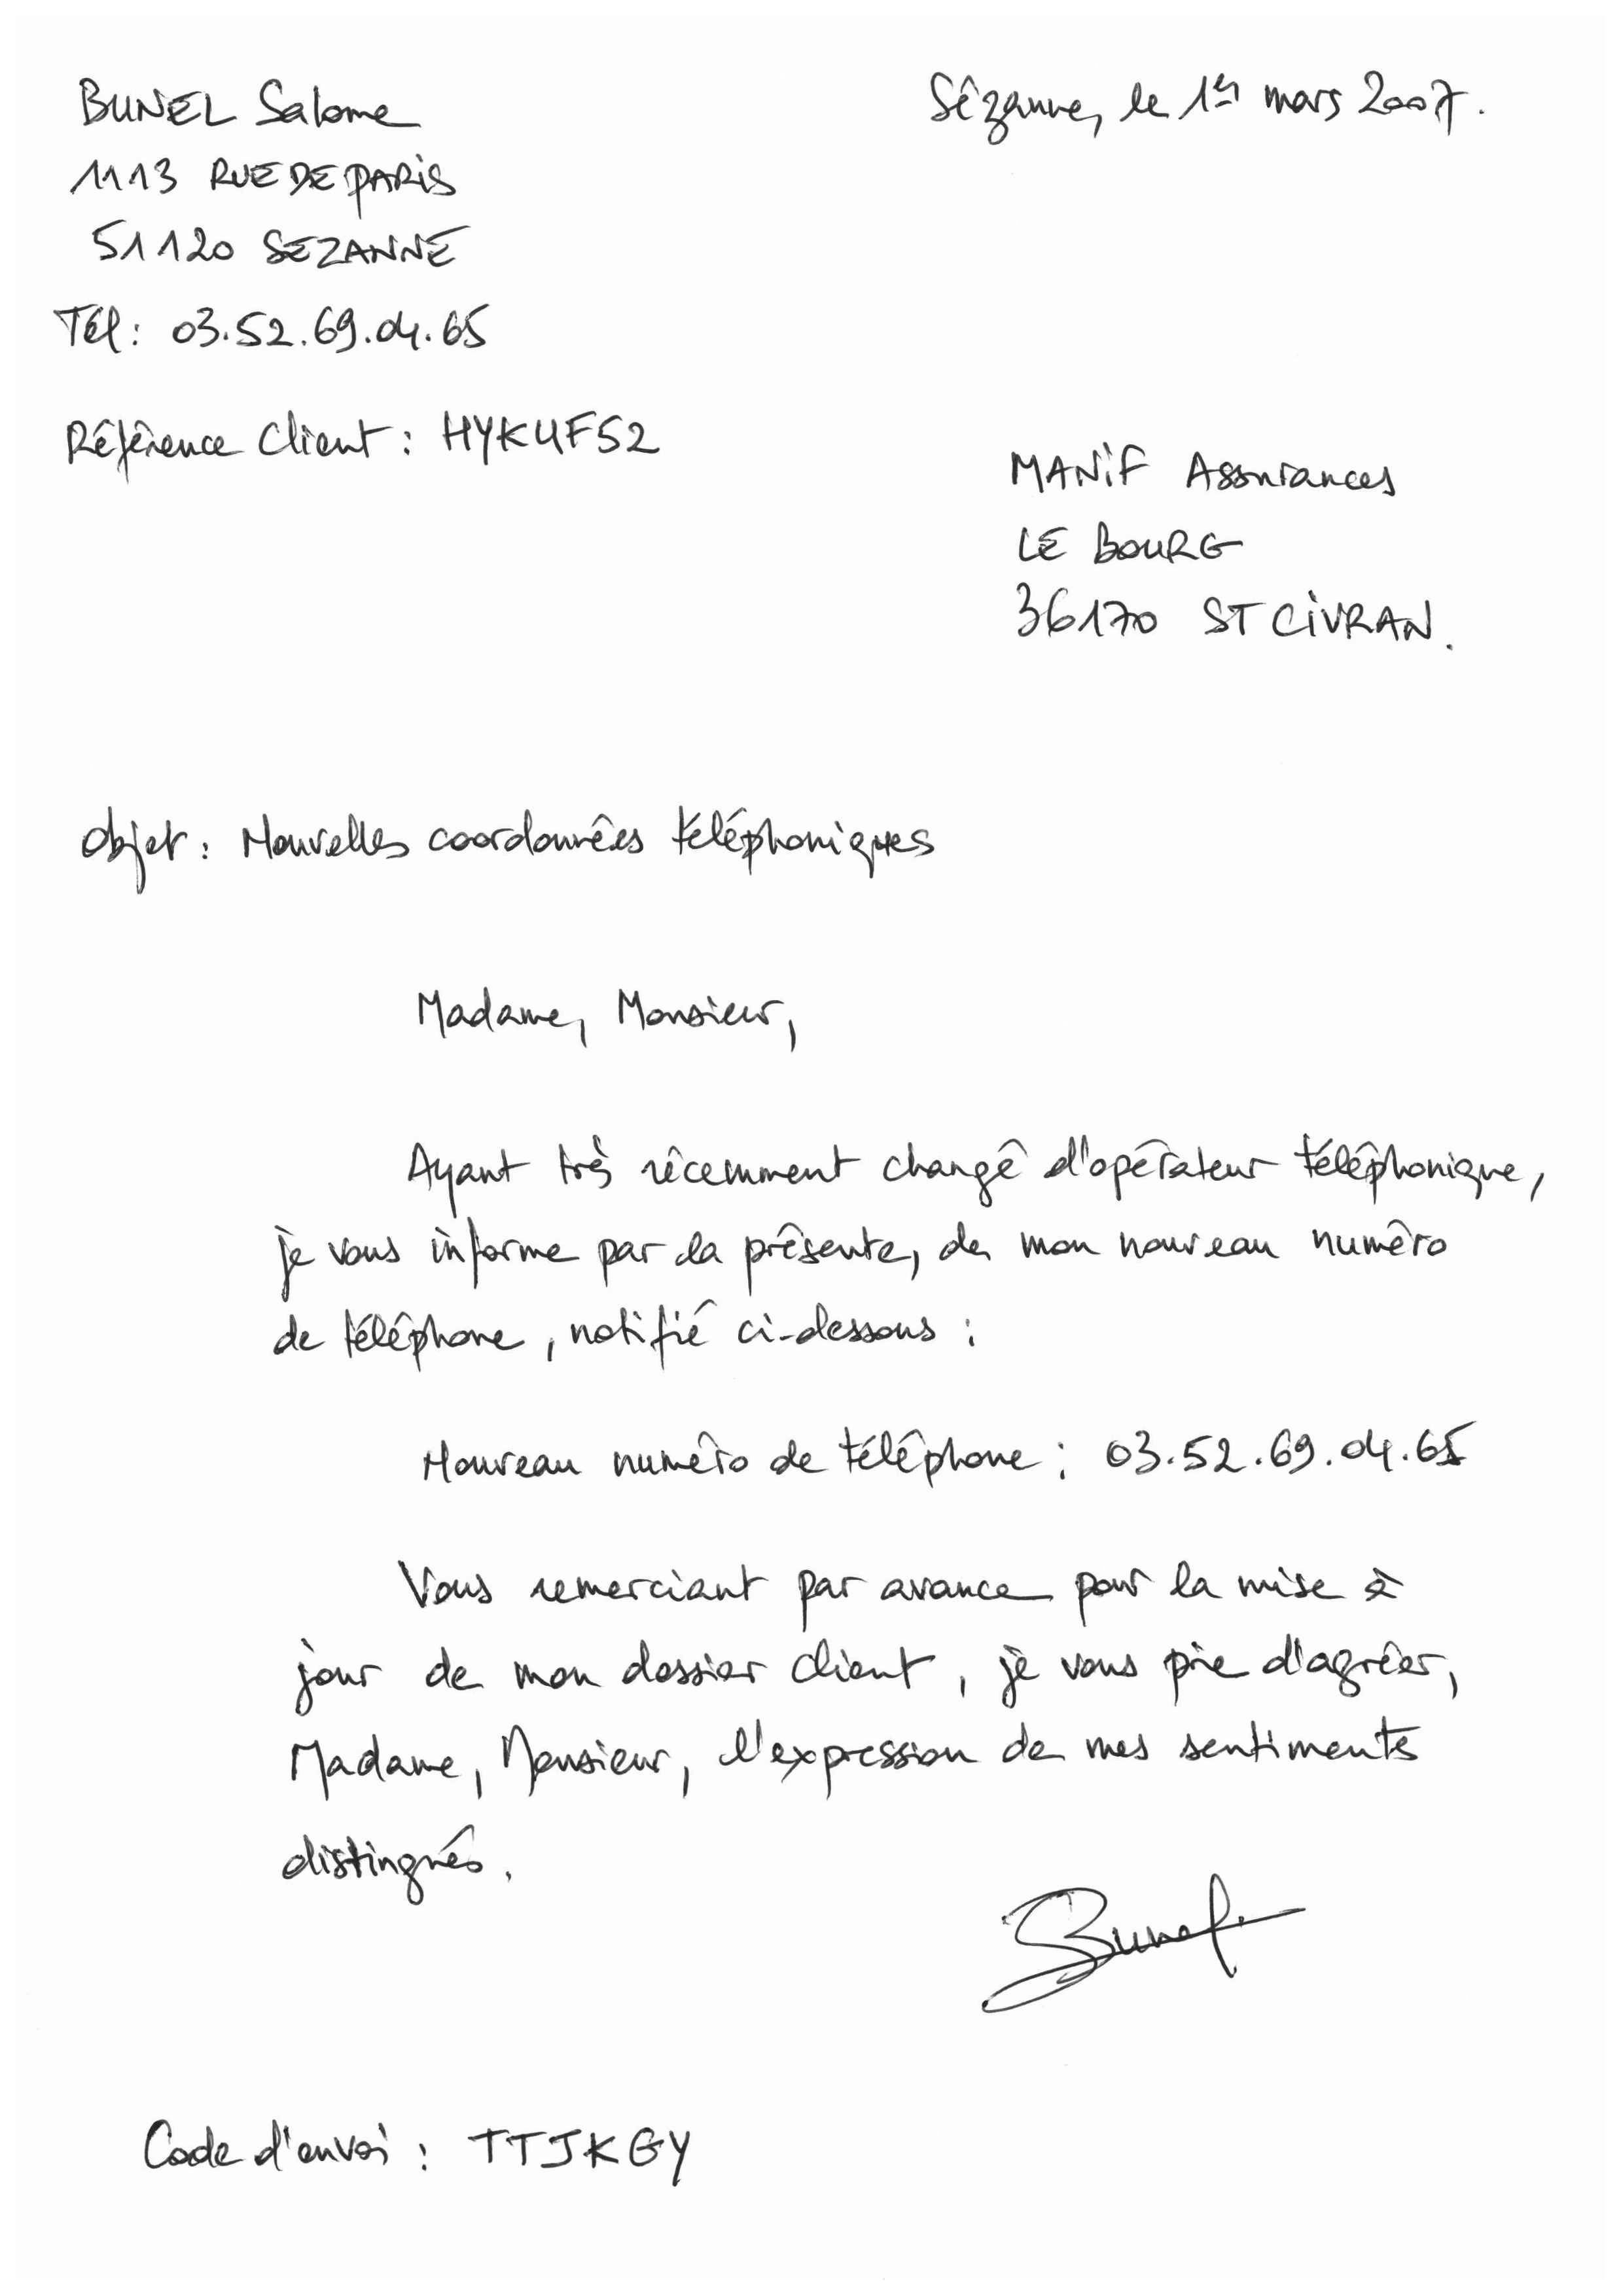 BUNEL Salome
1113 RUE DE PARIS
51120 SEZANNE
Tél : 03.52.69.04.65
Référence Client : HYKUF52
Sézanne, le 1er mars 2007.
MANIF Assurances
LE BOURG
36170 ST CIVRAN.
Objet : Nouvelles coordonnées téléphoniques
Madame, Monsieur,
Ayant très récemment changé d'opérateur téléphonique,
je vous informe par la présente, de mon nouveau numéro
de téléphone, notifié ci-dessous :
Nouveau numéro de téléphone : 03.52.69.04.65
Vous remerciant par avance pour la mise à
jour de mon dossier client, je vous prie d'agréer,
Madame, Monsieur, l'expression de mes sentiments
distingués.
SBunel
Code d'envoi : TTJKGY